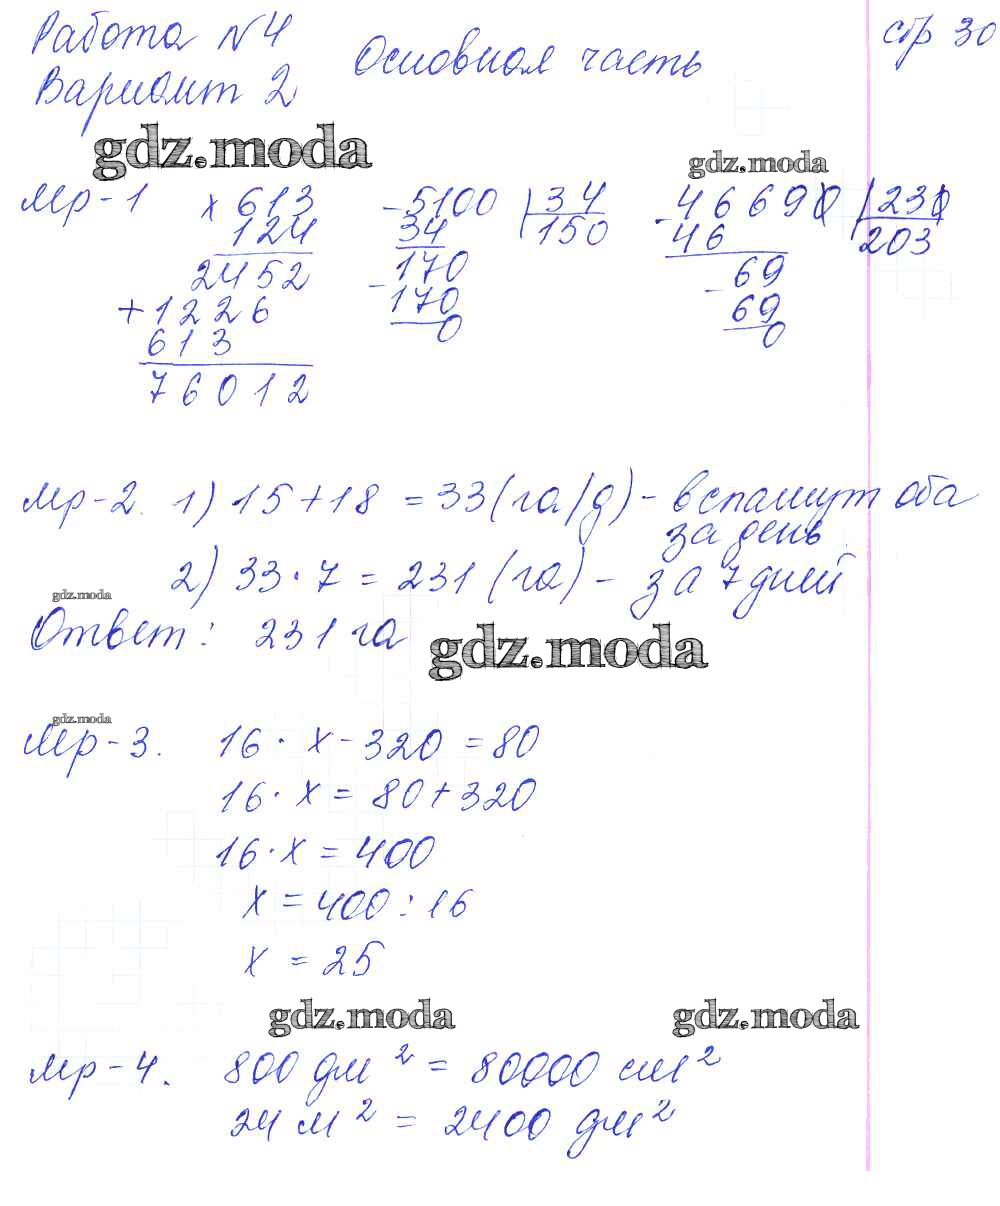 Работа №4 стр 30
Вариант 2 Основная часть
gdz.moda
gdz.moda
Упр-1 × 613 - 5100 | 34 - 46690 | 230
124 34 150 46 203
2452 - 170 - 69
+ 1226 170 69
613 0 0
76012
Упр-2. 1) 15 + 18 = 33 (га/д) - вспашут оба
за день
2) 33 · 7 = 231 (га) - за 7 дней
gdz.moda
Ответ: 231 га
gdz.moda
gdz.moda
Упр-3. 16 · x - 320 = 80
16 · x = 80 + 320
16 · x = 400
x = 400 : 16
x = 25
gdz.moda gdz.moda
Упр-4. 800 дм² = 80000 см²
24 м² = 2400 дм²